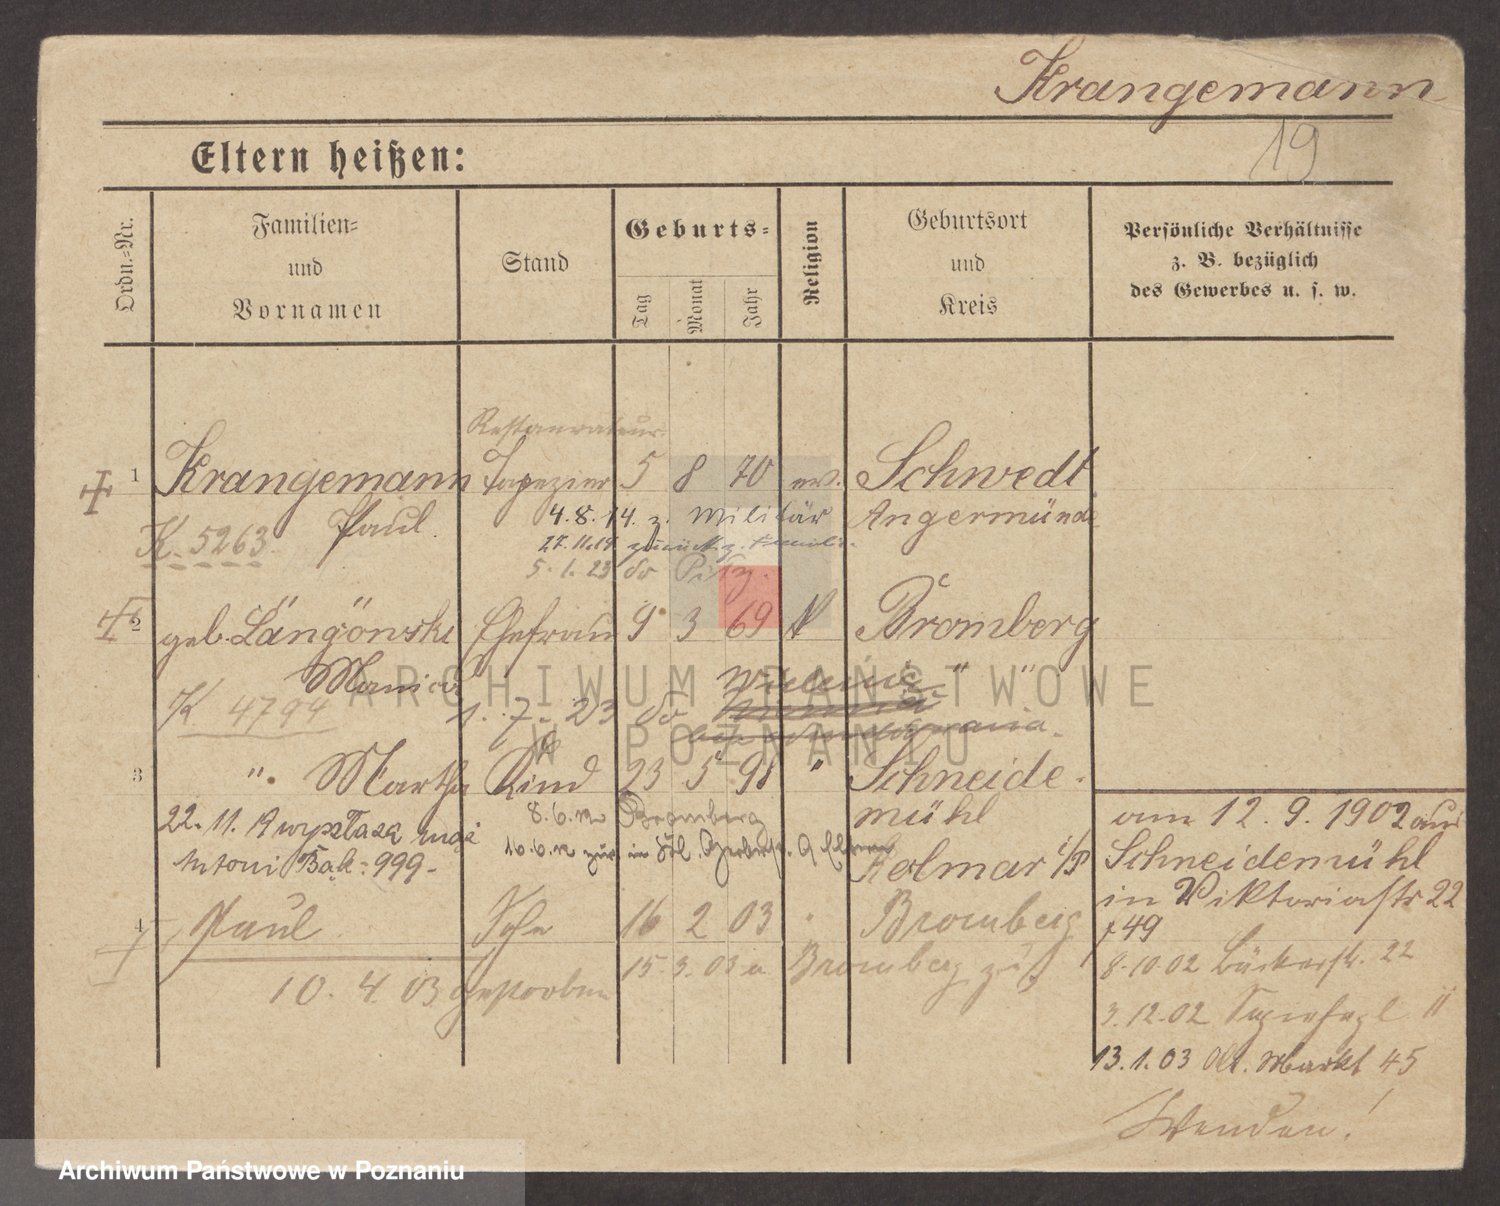 Krangemann
19
Eltern heißen:
Ordn.-Nr.
Familien- und Vornamen
Stand
Geburts-
Tag
Monat
Jahr
Religion
Geburtsort und Kreis
Persönliche Verhältnisse z. B. bezüglich des Gewerbes u. s. w.
Restaurateur
1 Krangemann Tapezier 5 8 70 ev. Schwedt
K. 5263 Paul 4.8.14. z. Militär Angermünde
27.11.18 zurück z.
5.1.23 do
2 geb. Längönski Ehefrau 9 3 69 K Bromberg
" "
K 4794 1.7.23 do
3 ". Martha Kind 23 5 98 " Schneide-
mühl
22.11.19 wyszła za mąż 8.6. Bromberg
Antoni Bąk = 999- zur. in 9 Eltern Kolmar i/P
4 Paul Sohn 16 2 03 " Bromberg
15.3.03 a Bromberg zu
10.4.03 gestorben
am 12.9.1902 aus
Schneidemühl
in Viktoriastr 22
f 49
8.10.02 Bäckerstr. 22
3.12.02 11
13.1.03 Alt. Markt 45
Wenden!
ARCHIWUM PAŃSTWOWE
W POZNANIU
Archiwum Państwowe w Poznaniu